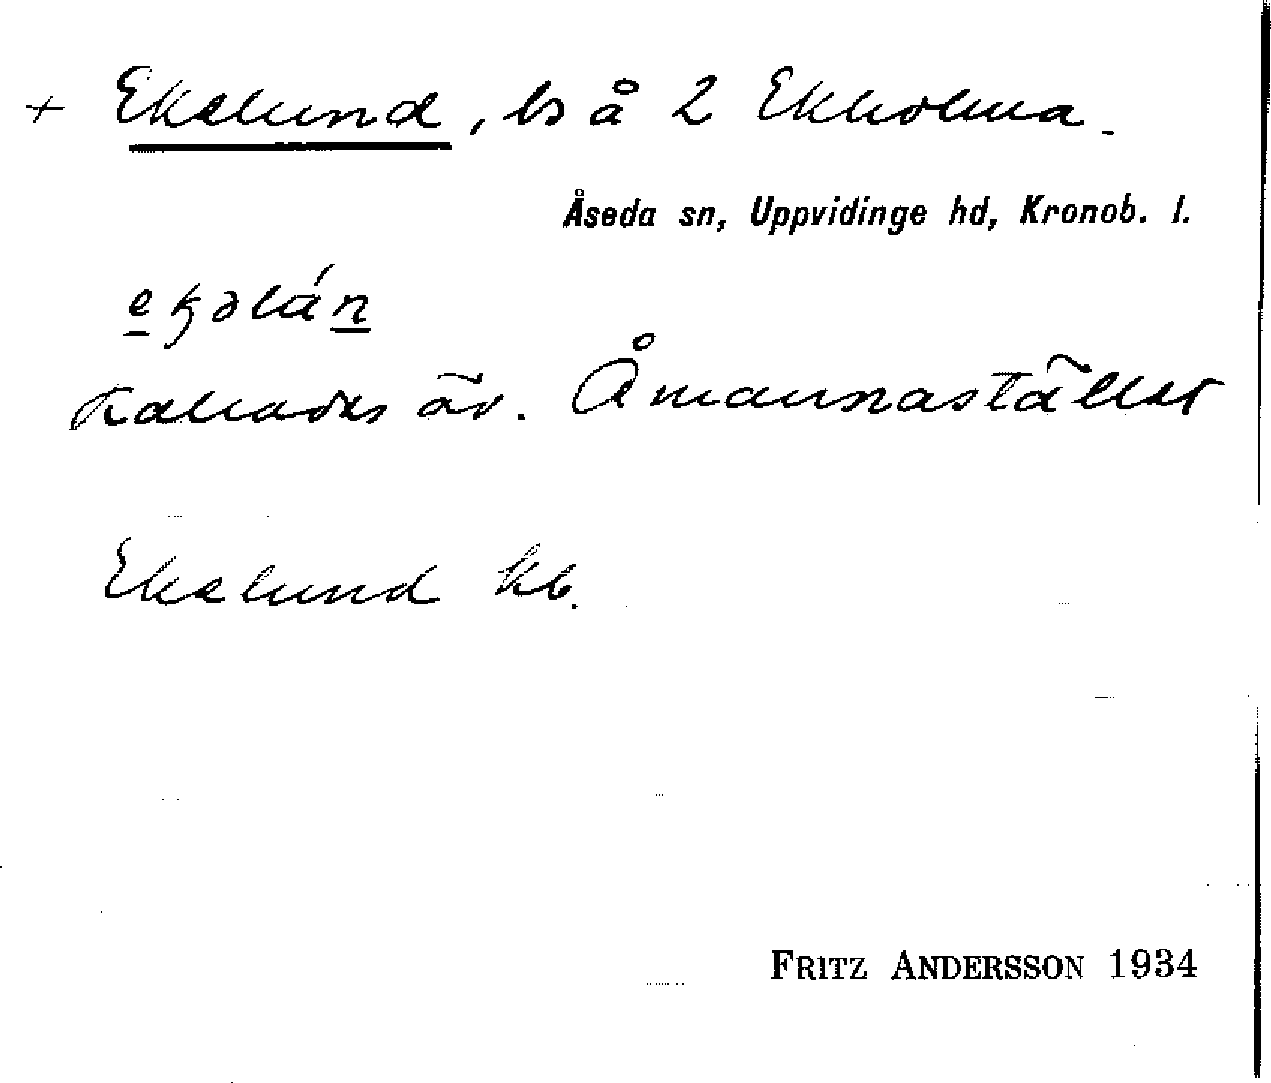 + Ekelund, ls å 2 Ekholma.
Åseda sn, Uppvidinge hd, Kronob. l.
Kallades äv. Åmannastället
Ekelund kb.
FRITZ ANDERSSON 1934